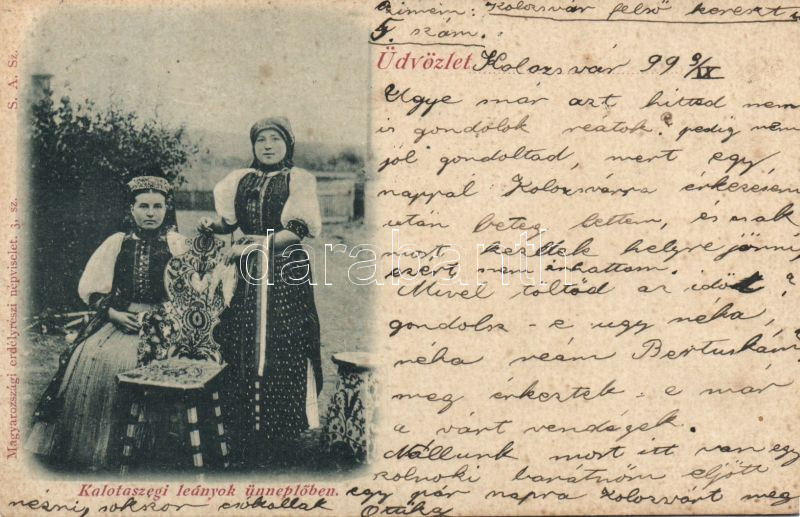 Czimem: Kolozsvár felső kereszt u
5. szám.
Üdvözlet Kolozsvár 99 9/IX
Ugye már azt hitted nem
is gondolok reátok? pedig nem
jól gondoltad, mert egy
nappal Kolozsvárra érkezésem
után beteg lettem, és csak
most kezdtek helyre jönni
ezért nem írhattam.
Mivel töltöd az időt?
gondolsz-e ugy néha,
néha reám Bertuskám
meg érkeztek-e már
a várt vendégek.
Nállunk most itt van egy
szolnoki barátnőm eljött
egy pár napra Kolozsvárt meg
nézni, sokszor csókollak Ottilka
Kalotaszegi leányok ünneplőben.
Magyarországi erdélyrészi népviselet. 3. sz. S. A. Sz.
darabanth